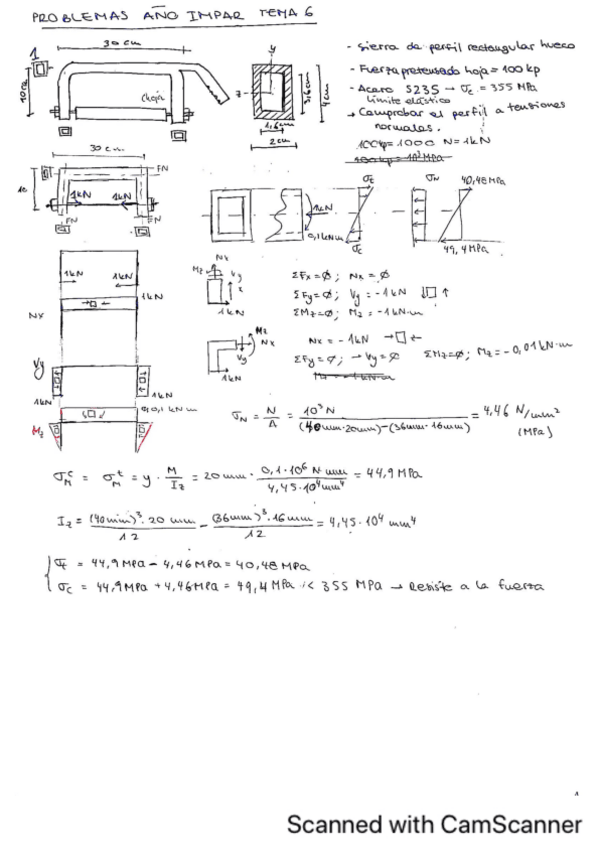 PROBLEMAS AÑO IMPAR TEMA 6
1
30 cm
10cm
y
z
3,6cm
4 cm
1,6cm
2cm
- Sierra de perfil rectangular hueco
- Fuerza pretensado hoja = 100 kp
- Acero S235 → σc = 355 MPa
Límite elástico
→ Comprobar el perfil a tensiones
normales.
100kp = 1000 N = 1kN
30 cm
FN
1kN
1kN
FN
N
1kN
0,1kN·m
σt
σc
σN
40,48 MPa
49,4 MPa
1kN
1kN
1kN
Nx
Mz
Nx
Vy
x
1kN
ΣFx = ∅; Nx = ∅
ΣFy = ∅; Vy = -1kN
ΣMz = ∅; Mz = -1kN·m
Vy
1kN
1kN
Mz
Nx
Vy
1kN
Nx = -1kN
ΣFy = ∅; → Vy = ∅ ΣMz = ∅; Mz = -0,01kN·m
Mz = -1kN·m
0,1 kN m
Mz
σN = N/A = 10³ N / (40mm·20mm)-(36mm·16mm) = 4,46 N/mm² (MPa)
σM^c = σM^t = y · M/Iz = 20mm · 0,1·10⁶ N·mm / 4,45·10⁴mm⁴ = 44,9MPa
Iz = (40mm)³·20 mm / 12 - (36mm)³·16mm / 12 = 4,45·10⁴ mm⁴
σt = 44,9MPa - 4,46MPa = 40,48 MPa
σc = 44,9MPa + 4,46MPa = 49,4 MPa < 355 MPa → Resiste a la fuerza
1
Scanned with CamScanner